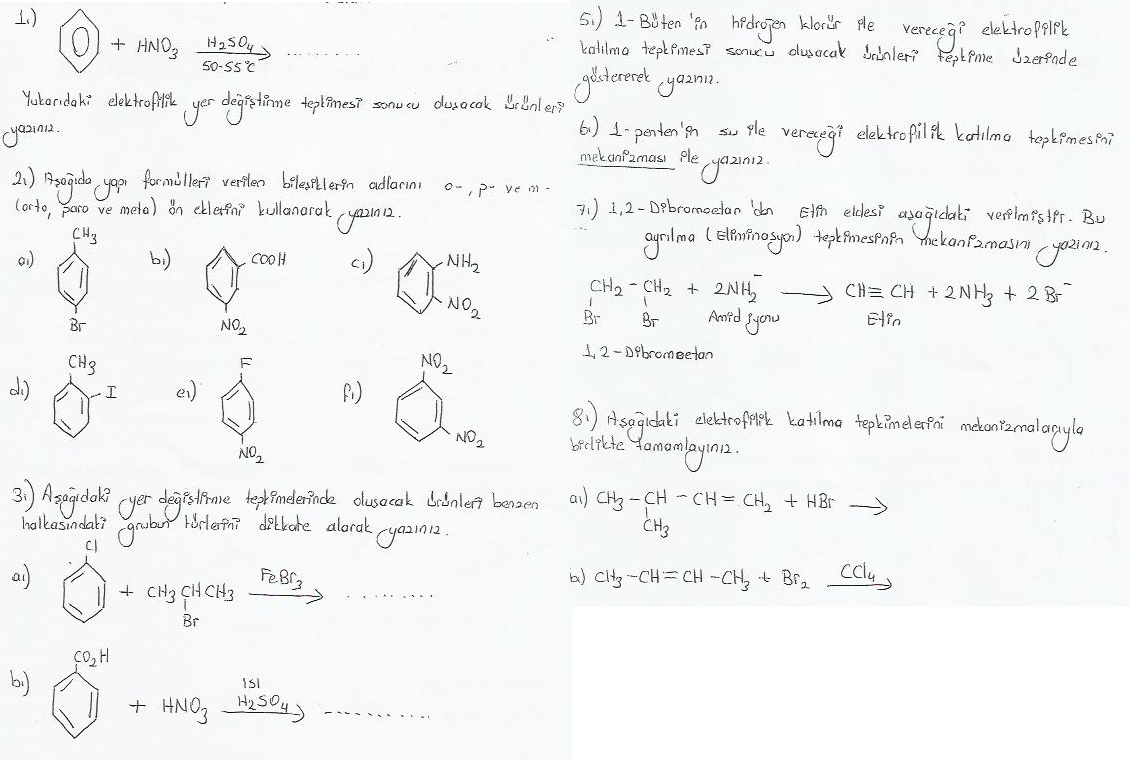 1.)
+ HNO3 H2SO4 50-55°C ........
Yukarıdaki elektrofilik yer değiştirme tepkimesi sonucu oluşacak ürünleri
yazınız.
2.) Aşağıda yapı formülleri verilen bileşiklerin adlarını o-, p- ve m-
(orto, para ve meta) ön eklerini kullanarak yazınız.
a.) CH3 Br
b.) COOH NO2
c.) NH2 NO2
d.) CH3 I
e.) F NO2
f.) NO2 NO2
3.) Aşağıdaki yer değiştirme tepkimelerinde oluşacak ürünleri benzen
halkasındaki grubun türlerini dikkate alarak yazınız.
a.) Cl + CH3CHCH3 FeBr3 ........
Br
b.) CO2H + HNO3 ısı H2SO4 ........
5.) 1-Büten'in hidrojen klorür ile vereceği elektrofilik
katılma tepkimesi sonucu oluşacak ürünleri tepkime üzerinde
göstererek yazınız.
6.) 1-penten'in su ile vereceği elektrofilik katılma tepkimesini
mekanizması ile yazınız.
7.) 1,2-Dibromoetan'dan Etin eldesi aşağıdaki verilmiştir. Bu
ayrılma (Eliminasyon) tepkimesinin mekanizmasını yazınız.
CH2 - CH2 + 2NH2⁻ → CH≡CH + 2NH3 + 2Br⁻
Br Br Amid iyonu Etin
1,2-Dibromoetan
8.) Aşağıdaki elektrofilik katılma tepkimelerini mekanizmalarıyla
birlikte tamamlayınız.
a.) CH3 - CH - CH = CH2 + HBr →
CH3
b.) CH3 - CH = CH - CH3 + Br2 CCl4 →